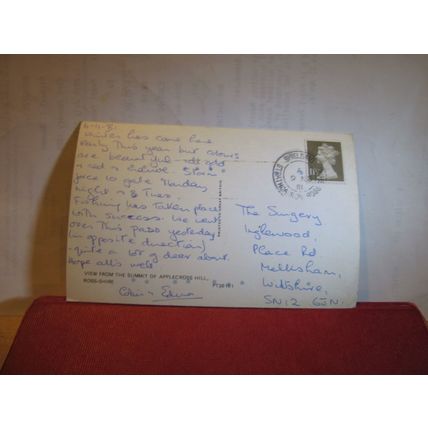 4-11-81
Winter has come here
early this year but colours
are beautiful - all gold
& red & Storm"
force 10 gale Monday
night & Tues.
Fishing has taken place
with success. We went
over this pass yesterday
(in opposite direction)
- quite a lot of deer about.
Hope all's well
VIEW FROM THE SUMMIT OF APPLECROSS HILL,
ROSS-SHIRE
Colin & Edwina
The Surgery
Inglewood,
Place Rd
Melksham,
Wiltshire,
SN12 6JN.